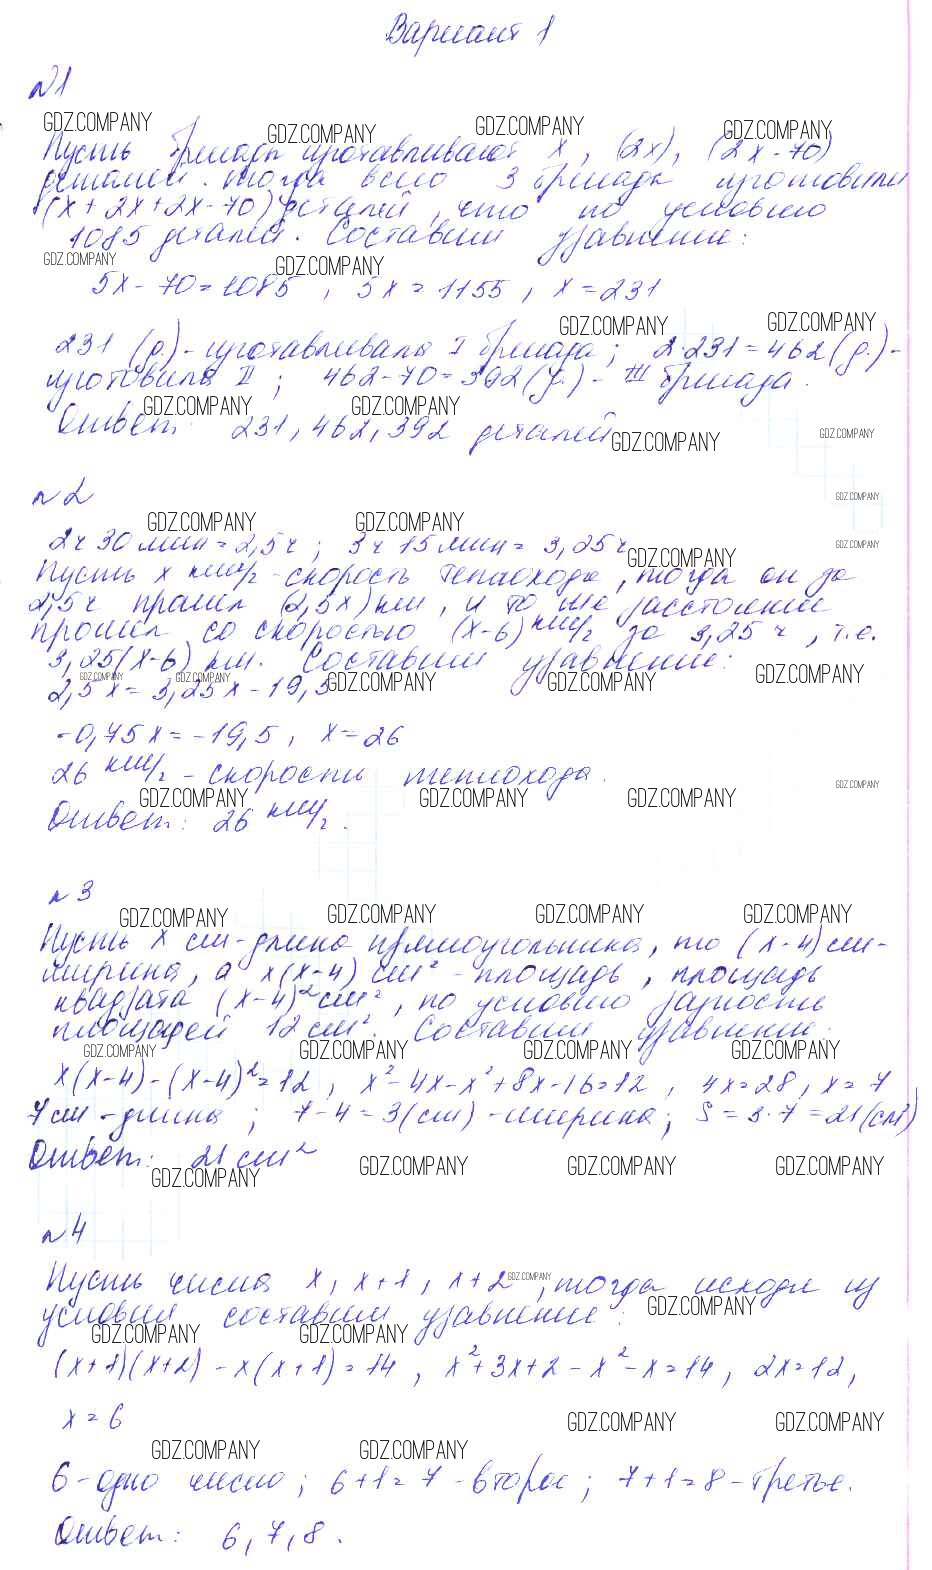 Вариант 1
№1
GDZ.COMPANY GDZ.COMPANY GDZ.COMPANY GDZ.COMPANY
Пусть бригады изготавливают x, (2x), (2x-70)
деталей. тогда всего 3 бригады изготовили
(x+2x+2x-70) деталей, что по условию
1085 деталей. Составим уравнение:
GDZ.COMPANY GDZ.COMPANY
5x-70=1085, 5x=1155, x=231
GDZ.COMPANY GDZ.COMPANY
231 (д.)-изготавливала I бригада; 2·231=462(д.)-
изготовила II; 462-70=392(д.)- III бригада.
GDZ.COMPANY GDZ.COMPANY
Ответ: 231, 462, 392 деталей
GDZ.COMPANY GDZ.COMPANY
№2
GDZ.COMPANY
GDZ.COMPANY GDZ.COMPANY
2ч 30 мин=2,5ч; 3ч 15 мин= 3,25ч
GDZ.COMPANY GDZ.COMPANY
Пусть x км/г -скорость теплохода, тогда он за
2,5ч прошел (2,5x) км, и то же расстояние
прошел со скоростью (x-6) км/г за 3,25 ч, т.е.
3,25(x-6) км. Составим уравнение:
GDZ.COMPANY GDZ.COMPANY GDZ.COMPANY GDZ.COMPANY GDZ.COMPANY
2,5x=3,25x-19,5
-0,75x=-19,5, x=26
26 км/г -скорости теплохода.
GDZ.COMPANY GDZ.COMPANY GDZ.COMPANY GDZ.COMPANY
Ответ: 26 км/г.
№3
GDZ.COMPANY GDZ.COMPANY GDZ.COMPANY GDZ.COMPANY
Пусть x см-длина прямоугольника, то (x-4) см-
ширина, а x(x-4) см² -площадь, площадь
квадрата (x-4)² см², по условию разность
площадей 12 см². Составим уравнение:
GDZ.COMPANY GDZ.COMPANY GDZ.COMPANY GDZ.COMPANY
x(x-4)-(x-4)²=12, x²-4x-x²+8x-16=12, 4x=28, x=7
7 см-длина; 7-4=3(см)-ширина; S=3·7=21(см²)
Ответ: 21 см²
GDZ.COMPANY GDZ.COMPANY GDZ.COMPANY GDZ.COMPANY
№4
Пусть числа x, x+1, x+2, тогда исходя из
GDZ.COMPANY GDZ.COMPANY
условия составим уравнение:
GDZ.COMPANY GDZ.COMPANY
(x+1)(x+2)-x(x+1)=14, x²+3x+2-x²-x=14, 2x=12,
x=6
GDZ.COMPANY GDZ.COMPANY
GDZ.COMPANY GDZ.COMPANY
6-одно число; 6+1=7-второе; 7+1=8-третье.
Ответ: 6, 7, 8.